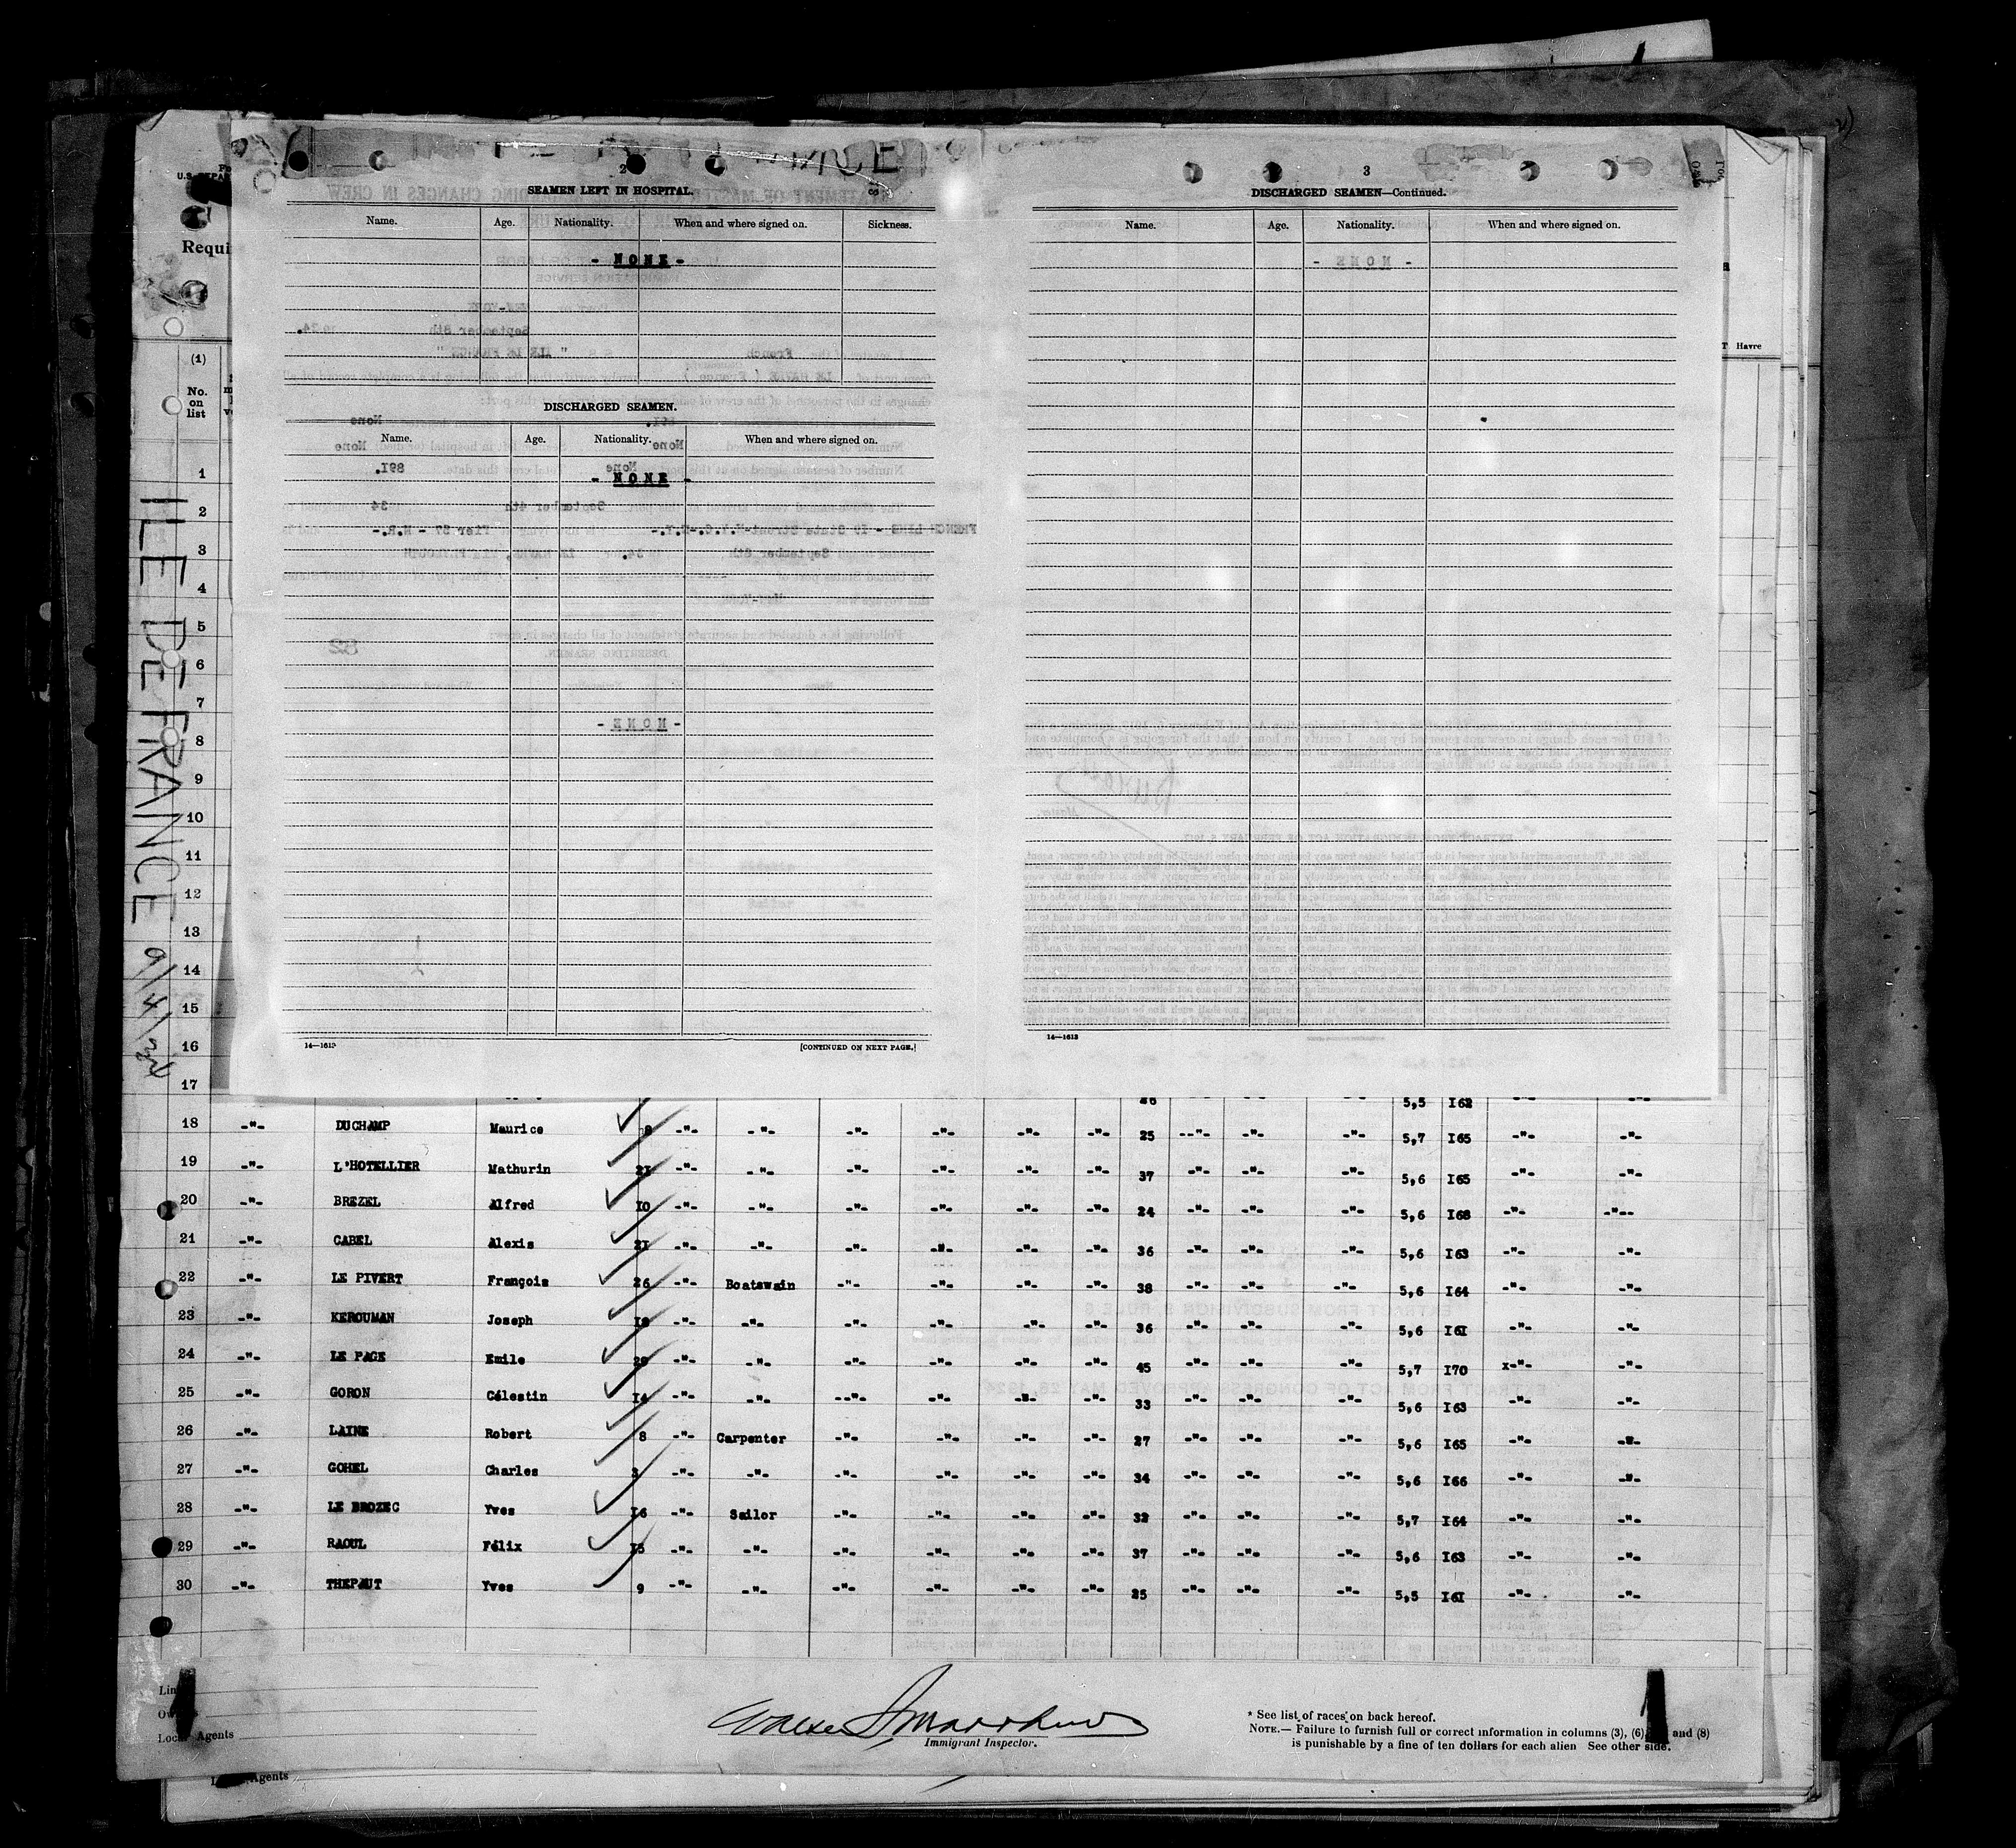 2
SEAMEN LEFT IN HOSPITAL.
Name. Age. Nationality. When and where signed on. Sickness.
- NONE -
DISCHARGED SEAMEN.
Name. Age. Nationality. When and where signed on.
- NONE -
14—1613 [CONTINUED ON NEXT PAGE.]
3
DISCHARGED SEAMEN—Continued.
Name. Age. Nationality. When and where signed on.
14—1613
Havre
Requi
(1)
No. on list
ILE DE FRANCE 9/4/34
1
2
3
4
5
6
7
8
9
10
11
12
13
14
15
16
17 26 5,5 I62
18 -"- DUCHAMP Maurice -"- -"- -"- -"- -"- -"- 25 --"- -"- -"- 5,7 I65 -"- -"-
19 -"- L'HOTELLIER Mathurin 21 -"- -"- -"- -"- -"- -"- 37 -"- -"- -"- 5,6 I65 -"- -"-
20 -"- BREZEL Alfred I0 -"- -"- -"- -"- -"- -"- 24 -"- -"- -"- 5,6 I68 -"- -"--
21 -"- CABEL Alexis 2I -"- -"- -"- -"- -"- -"- 36 -"- -"- -"- 5,6 I63 -"- -"-
22 -"- LE PIVERT François 26 -"- Boatswain -"- -"- -"- -"- 38 -"- -"- -"- 5,6 I64 -"- -"-
23 -"- KEROUMAN Joseph -"- -"- -"- -"- -"- -"- 36 -"- -"- -"- 5,6 I6I -"- -"-
24 -"- LE PAGE Emile -"- -"- -"- -"- -"- -"- 45 -"- -"- -"- 5,7 I70 x-"- -"-
25 -"- GORON Célestin I4 -"- -"- --"- -"- -"- -"- 33 -"- -"- -"- 5,6 I63 -"- -"-
26 -"- LAINE Robert 8 -"- Carpenter -"- -"- -"- -"- 27 -"- -"- -"- 5,6 I65 -"- -"-
27 -"- GOHEL Charles 3 -"- -"- -"- -"- -"- -"- 34 -"- -"- -"- 5,6 I66 -"- -"-
28 -"- LE BROZEC Yves I6 -"- Sailor -"- -"- -"- -"- 32 -"- -"- -"- 5,7 I64 -"- -"-
29 -"- RAOUL Félix I5 -"- -"- -"- -"- -"- -"- 37 -"- -"- -"- 5,6 I63 -"- -"-
30 -"- THEPAUT Yves 9 -"- -"- -"- -"- -"- -"- 25 -"- -"- -"- 5,5 I6I -"- -"-
Local Agents
Immigrant Inspector.
* See list of races on back hereof.
NOTE.— Failure to furnish full or correct information in columns (3), (6), and (8)
is punishable by a fine of ten dollars for each alien See other side.
Agents